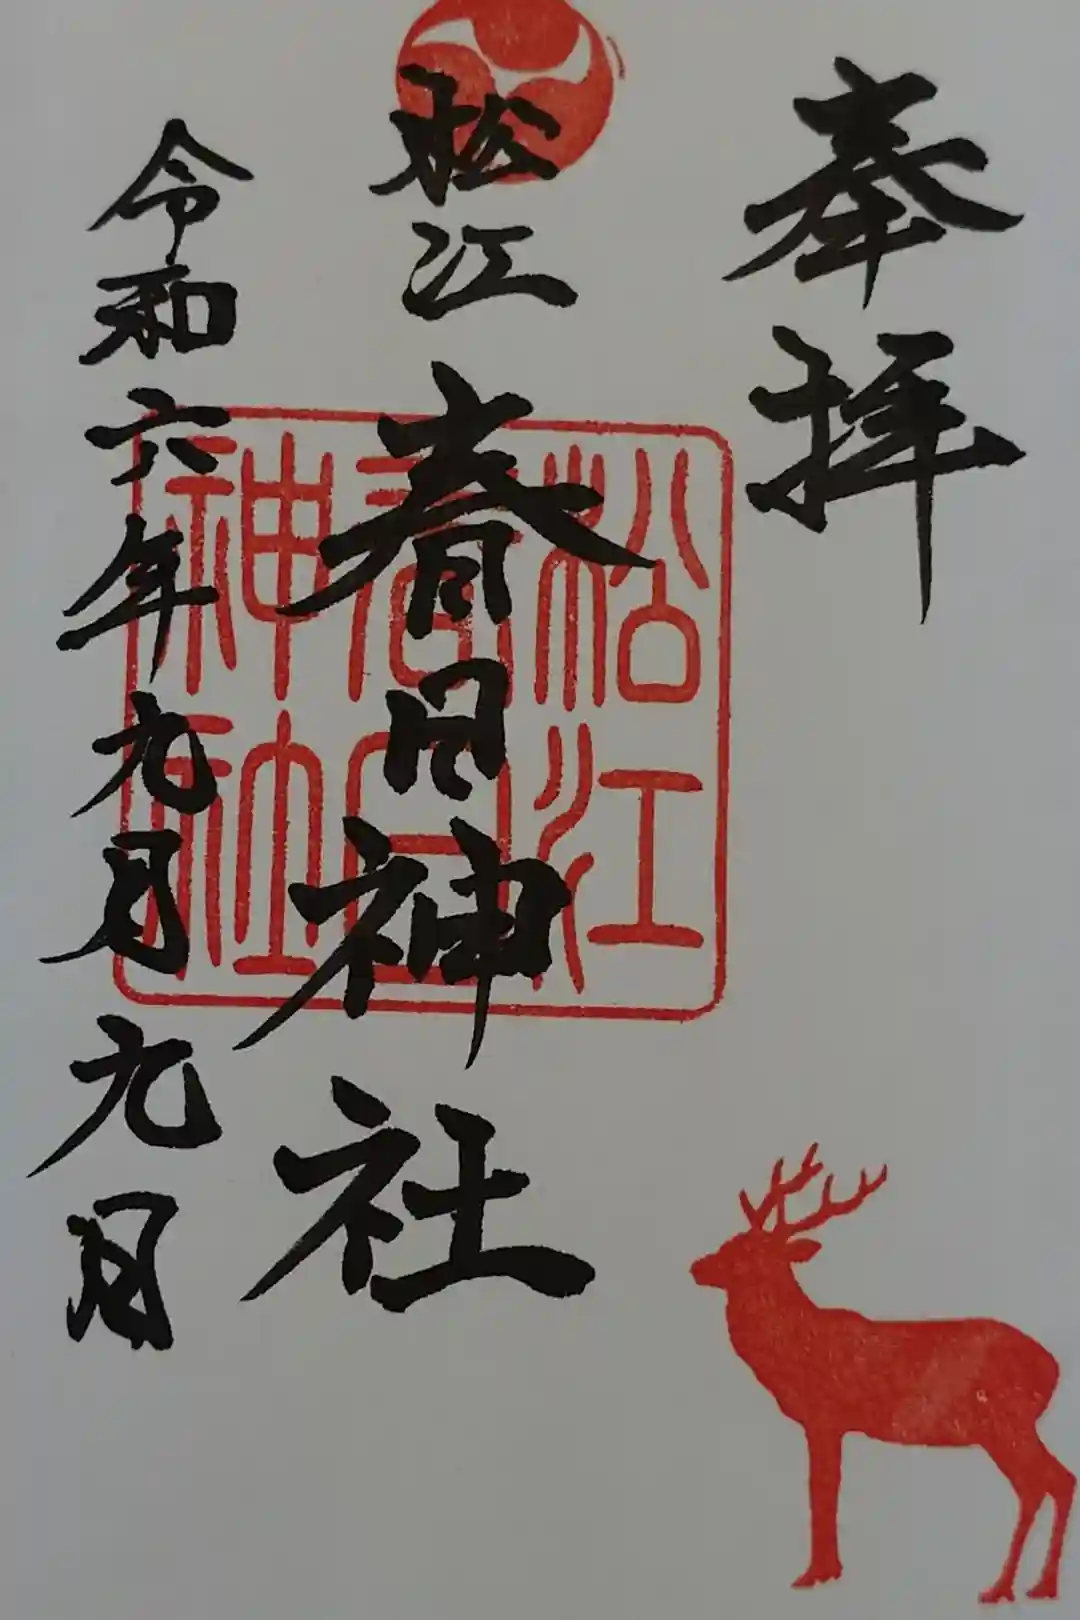 奉拝
松江春日神社
令和六年九月九日
松江
春日
神社